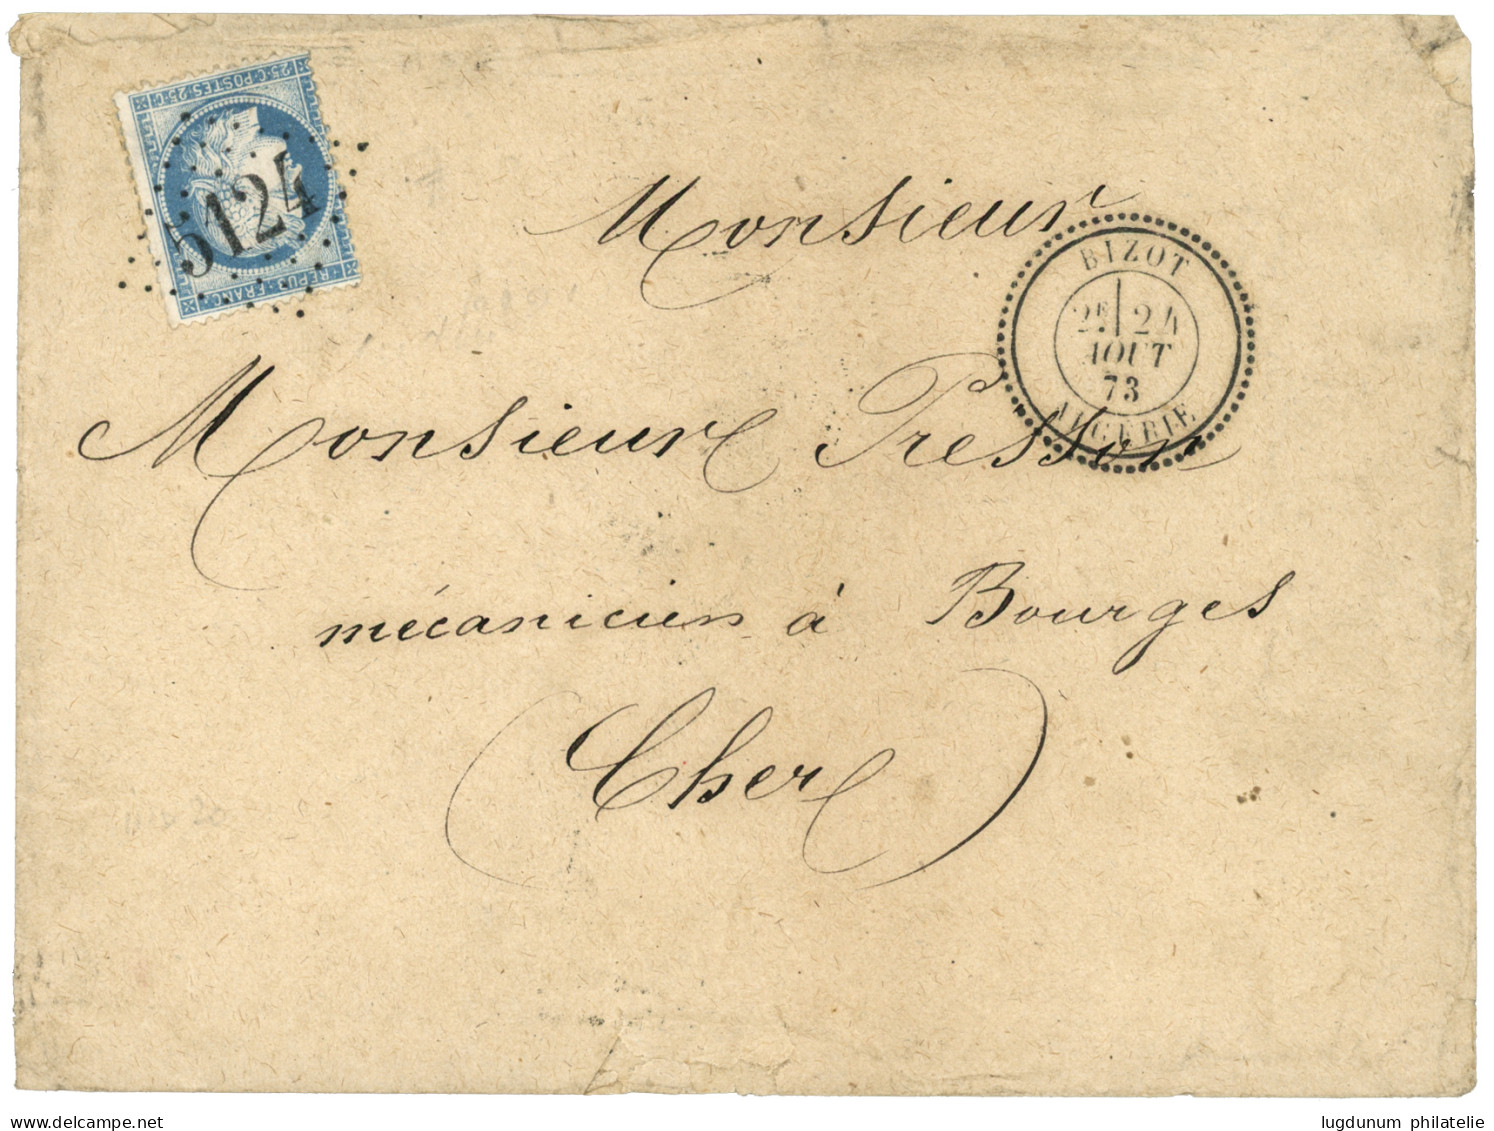 25·C·POSTES·25·C
REPUB·FRANC·
5124
Monsieur
BIZOT
2E 24
AOUT
73
ALGERIE
Monsieur Presson
mécanicien à Bourges
(Cher)
www.delcampe.net
lugdunum philatelie